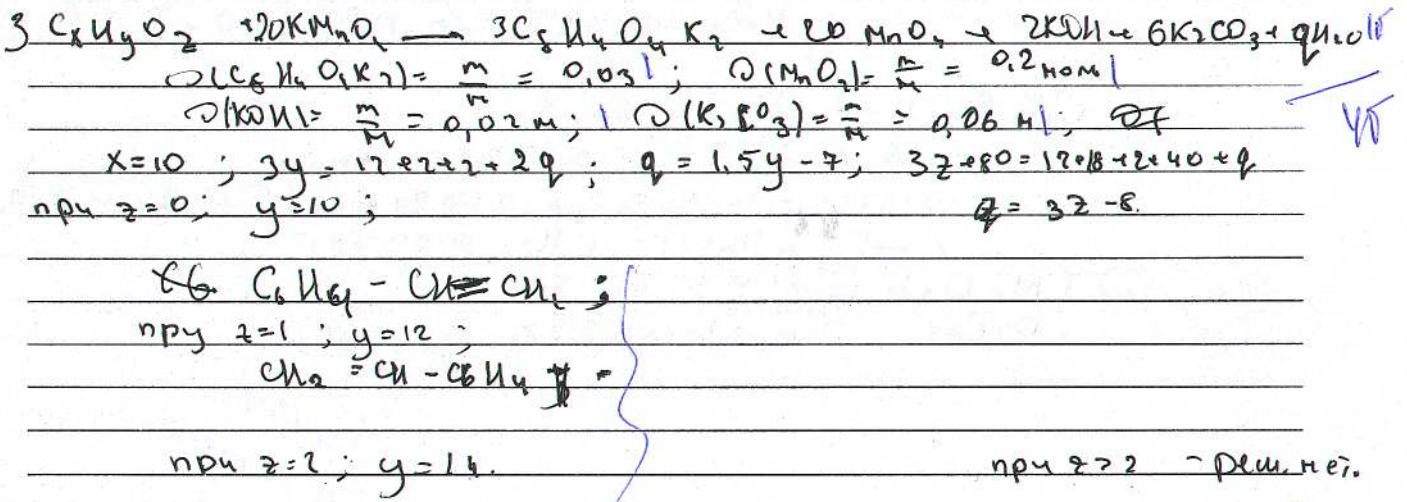 3 CxHyOz +20KMnO4 — 3C8H4O4K2 + 20 MnO2 + 2KOH + 6K2CO3 + qH2O 1б
ν(C8H4O4K2) = m/м = 0,03 | ; ν(MnO2) = m/м = 0,2 моль |
ν(KOH) = m/м = 0,02 м ; | ν(K2CO3) = m/м = 0,06 м | ;
4б
x=10 ; 3y = 12+2+2q ; q = 1,5y - 7 ; 3z+80 = 12+18+2+40+q
при z=0 ; y=10 ; q = 3z-8.
C6H4 - CH=CH2 ;
при z=1 ; y=12 ;
CH2 = CH - C6H4 -
при z=2 ; y=14. при z>2 - реш. нет.